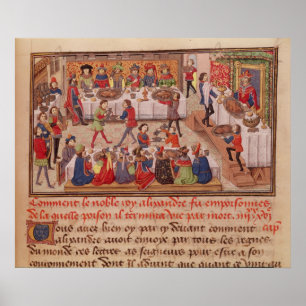 Comment le noble roy alixandre fu empoisonnez
De la quelle poison il termina vie par mort. 
Vous auez bien oy par cy deuant comment cap
alixandre auoit enuoye par tous les regnes
du monde ses lettres as seigneurs pour estre a son
couronnement dont il aduint que quant ce vint au